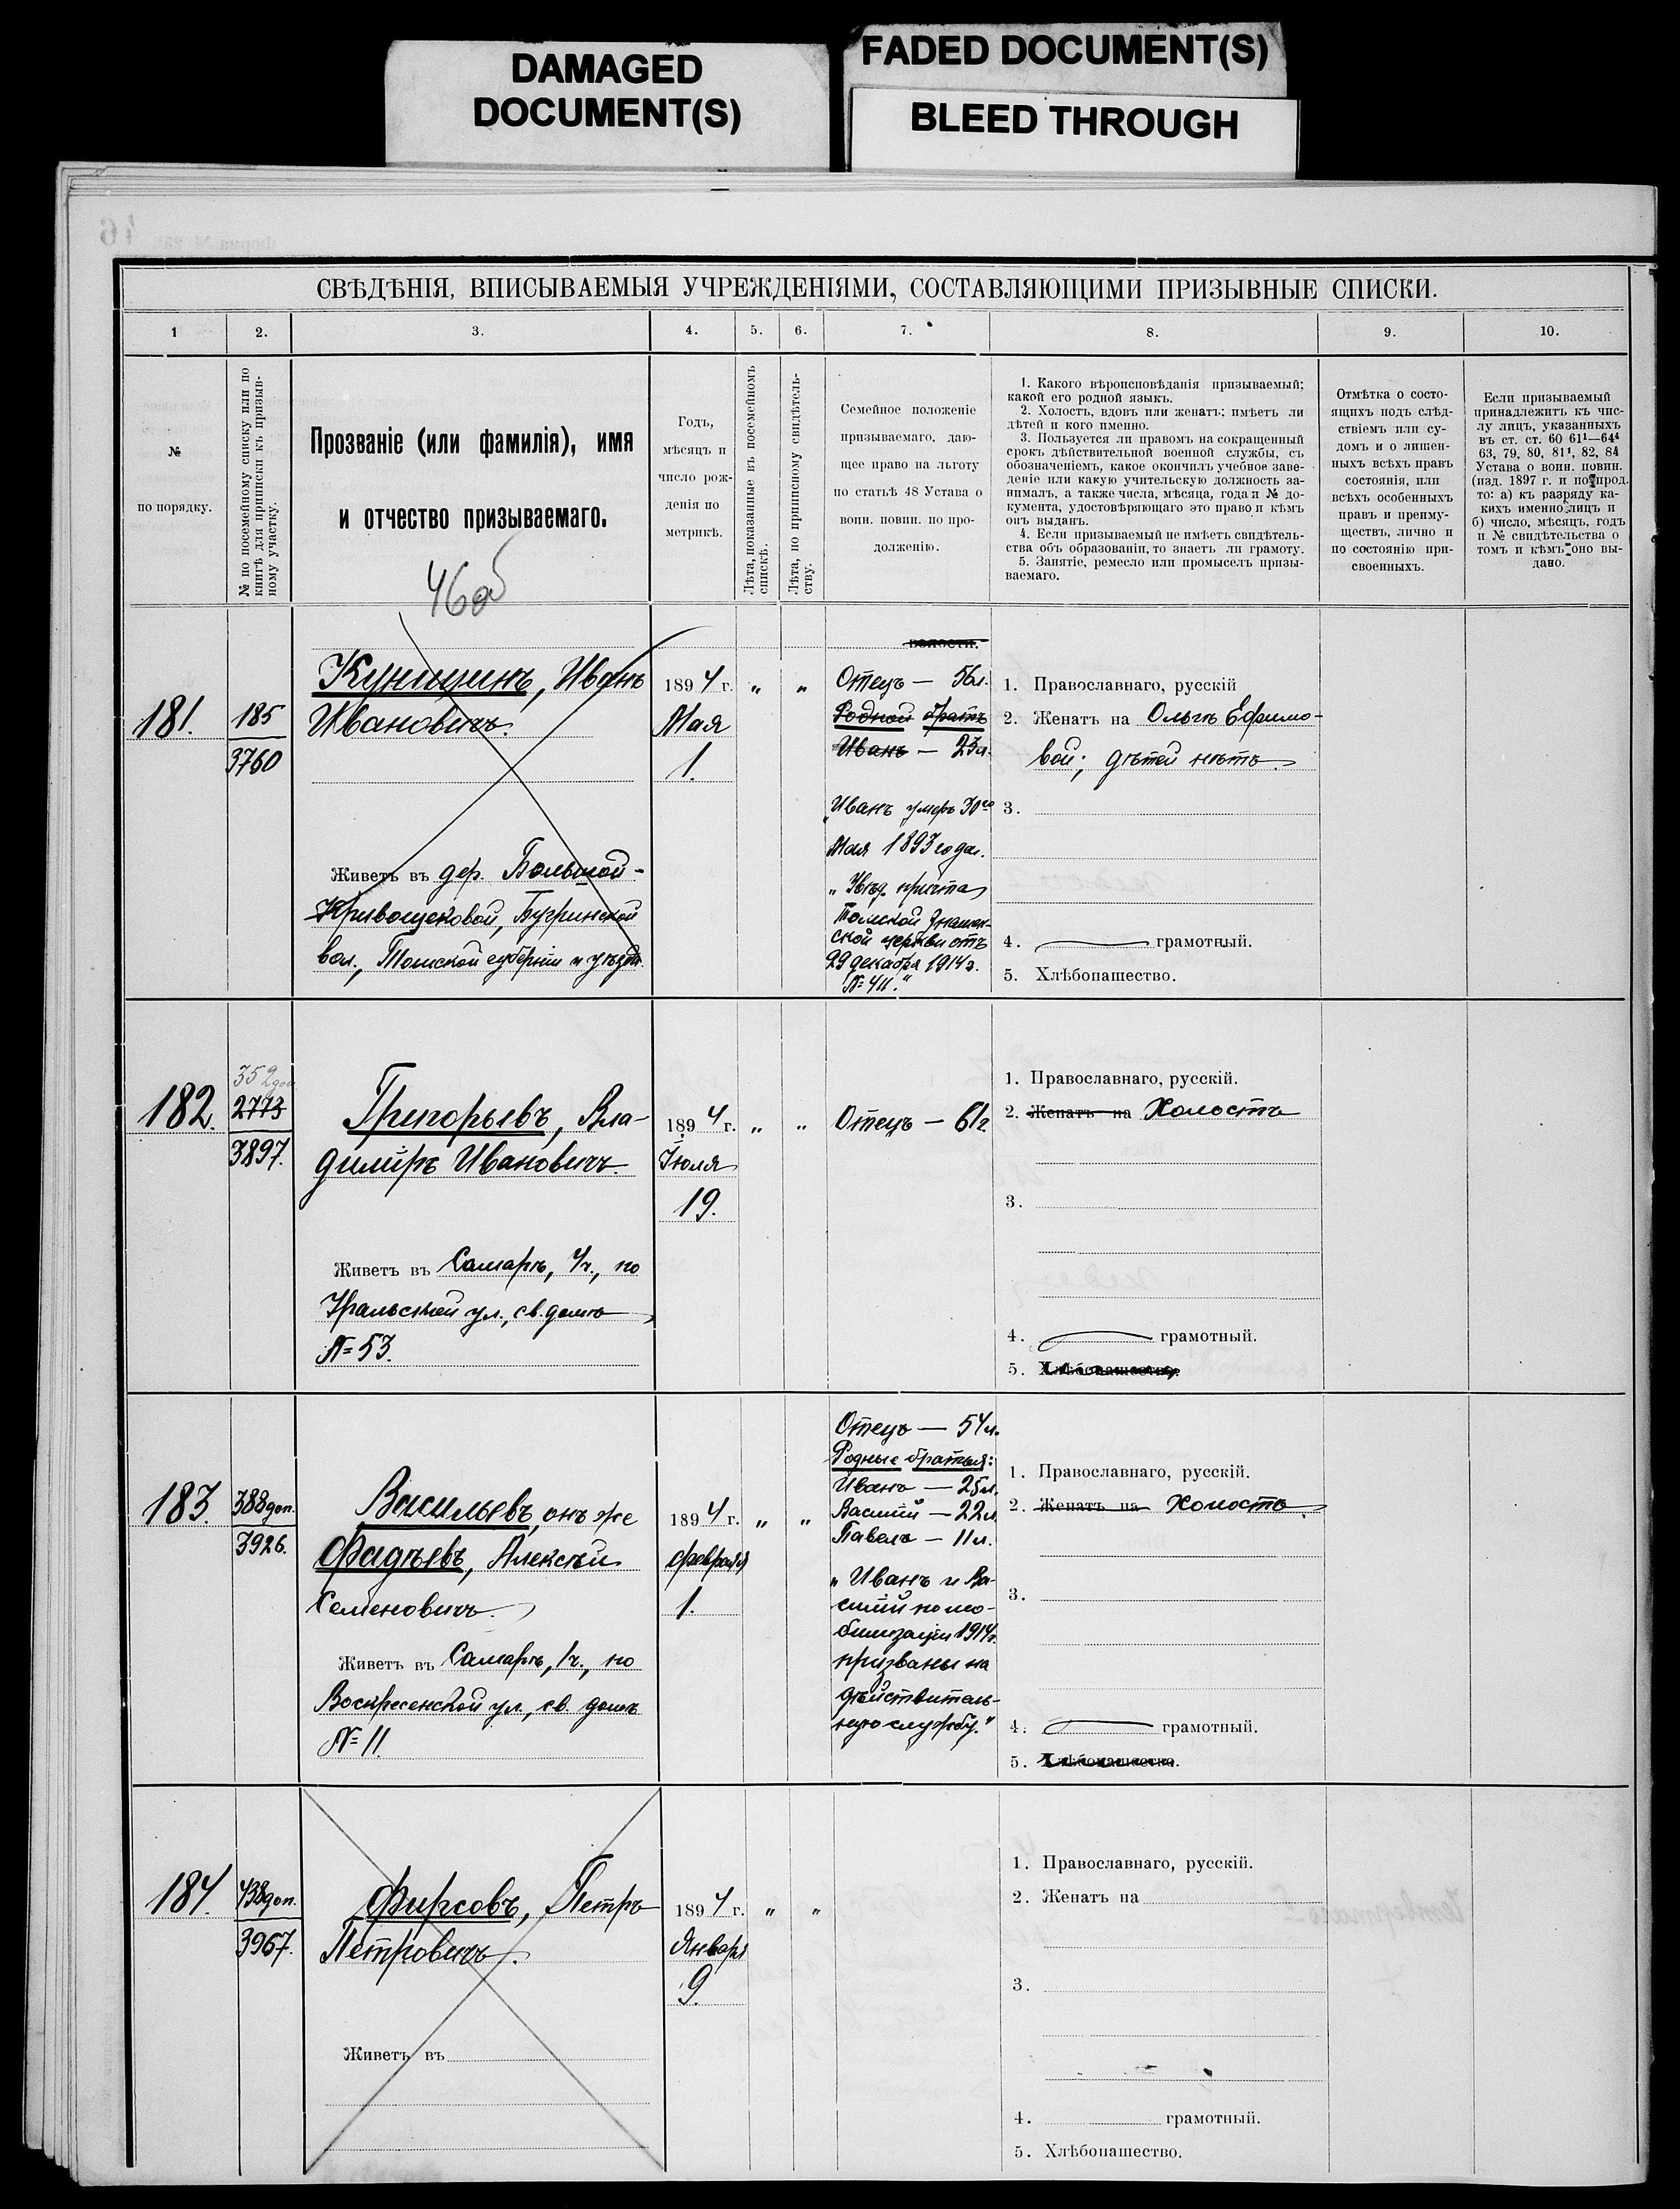 DAMAGED
DOCUMENT(S)
FADED DOCUMENT(S)
BLEED THROUGH
СВѢДѢНІЯ, ВПИСЫВАЕМЫЯ УЧРЕЖДЕНІЯМИ, СОСТАВЛЯЮЩИМИ ПРИЗЫВНЫЕ СПИСКИ.
1
2.
3.
4.
5.
6.
7.
8.
9.
10.
№
по порядку.
№ по посемейному списку или по
книгѣ для приписки къ призыв-
ному участку.
Прозваніе (или фамилія), имя
и отчество призываемаго.
46об
Годъ,
мѣсяцъ и
число рож-
денія по
метрикѣ.
Лѣта, показанные въ посемейномъ
спискѣ.
Лѣта, по приписному свидѣтель-
ству.
Семейное положеніе
призываемаго, даю-
щее право на льготу
по статьѣ 48 Устава о
воин. повин. по про-
долженію.
1. Какого вѣроисповѣданія призываемый;
какой его родной языкъ.
2. Холостъ, вдовъ или женатъ; имѣетъ ли
дѣтей и кого именно.
3. Пользуется ли правомъ на сокращенный
срокъ дѣйствительной военной службы, съ
обозначеніемъ, какое окончилъ учебное заве-
деніе или какую учительскую должность за-
нималъ, а также числа, мѣсяца, года и № до-
кумента, удостовѣряющаго это право и кѣмъ
онъ выданъ.
4. Если призываемый не имѣетъ свидѣтель-
ства объ образованіи, то знаетъ ли грамоту.
5. Занятіе, ремесло или промыселъ призы-
ваемаго.
Отмѣтка о состо-
ящихъ подъ слѣд-
ствіемъ или су-
домъ и о лишен-
ныхъ всѣхъ правъ
состоянія, или
всѣхъ особенныхъ
правъ и преиму-
ществъ, лично и
по состоянію при-
своенныхъ.
Если призываемый
принадлежитъ къ чис-
лу лицъ, указанныхъ
въ ст. ст. 60 61¹—64⁴
63, 79, 80, 81¹, 82, 84
Устава о воин. повин.
(изд. 1897 г. и по прод.
то: а) къ разряду ка-
кихъ именно лицъ и
б) число, мѣсяцъ, годъ
и № свидѣтельства о
томъ и кѣмъ оно вы-
дано.
181.
185
3760
Кунищинъ, Иванъ
Ивановичъ.
Живетъ въ дер. Большой-
Кривощековой, Бугринской
вол., Томской губерніи и уѣзда.
1894 г.
Мая
1.
„
„
волости.
Отецъ — 56л.
Родной братъ
Иванъ — 23л.
„Иванъ умеръ 30го
Мая 1893 года.
„ Увѣд. причта
Томской Знамен-
ской церкви отъ
29 декабря 1914г.
№ 411."
1. Православнаго, русскій
2. Женатъ на Ольгѣ Ефимо-
вой; дѣтей нѣтъ.
3.
4. грамотный.
5. Хлѣбопашество.
182.
352 доп.
2773
3897.
Григорьевъ, Вла-
димiръ Ивановичъ.
Живетъ въ Самарѣ, 4ч., по
Уральской ул., св. домъ
№ 53.
1894 г.
Іюля
19.
„
„
Отецъ — 61г
1. Православнаго, русскій.
2. Женатъ на Холостъ
3.
4. грамотный.
5. Хлѣбопашество.
183.
388доп.
3926.
Васильевъ, онъ же
Фадѣевъ, Алексѣй
Семеновичъ.
Живетъ въ Самарѣ, 1ч., по
Воскресенской ул., св. домъ
№ 11.
1894 г.
февраля
1.
„
„
Отецъ — 54л.
Родные братья:
Иванъ — 25л.
Василій — 22л.
Павелъ — 11л.
„ Иванъ и Ва-
силій по мо-
билизаціи 1914г.
призваны на
дѣйствитель-
ную службу."
1. Православнаго, русскій.
2. Женатъ на Холостъ
3.
4. грамотный.
5. Хлѣбопашество.
184.
438доп.
3967.
Фирсовъ, Петръ
Петровичъ.
Живетъ въ
1894 г.
Января
9.
„
„
1. Православнаго, русскій.
2. Женатъ на
3.
4. грамотный.
5. Хлѣбопашество.